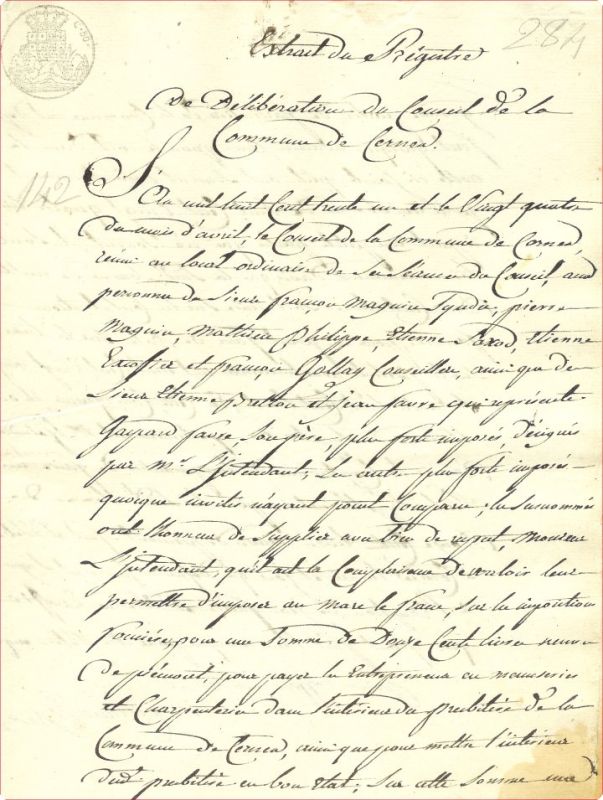 284
Extrait du Régistre
De Délibération du Conseil de la
Commune de Cernex.
142
L'an mil huit Cent trente un et le Vingt quatre
du mois d'avril, le Conseil de la Commune de Cernex
réuni au local ordinaire de ses Séances du Conseil, aux
personnes des Sieurs françois Maguin Syndic, pierre
Maguin, Mathieu philippe, Etienne Saxod, Etienne
Excoffier et françois Gollay Conseillers, ainsi que de
Sieur Etienne Bretton et jean favre qui représente
Gaspard favre Son père, plus forts imposés, désignés
par Mr. L'jntendant; les autres plus forts imposés
quoique invités n'ayant point Comparu; les Susnommés
ont l'honneur de Supplier avec bien de respect, Monsieur
L'jntendant, qu'il ait la Complaisance de vouloir leur
permettre d'imposer au marc le franc, sur la imposition
foncière, pour une Somme de Douze Cents livres neuves
de piémont, pour payer les Entrepreneurs en menuiseries
et Charpenterie dans l'intérieur du presbitère de la
Commune de Cernex, ainsi que pour mettre l'intérieur
dudt. presbitère en bon état; Sur cette Somme une